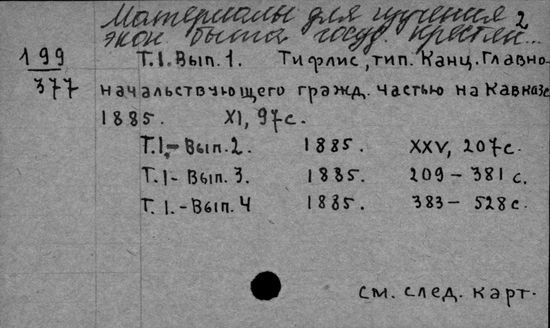 Материалы для изучения 2
экон. быта госуд. крестян...
199
377
Т.I. Вып. 1. Тифлис, тип. Канц. Главно-
начальствующего гражд. частью на Кавказе
1885. XI, 97с.
Т.I.- Вып. 2. 1885. XXV, 207с.
Т.I- Вып. 3. 1885. 209 - 381 с.
Т. I. - Вып. 4 1885. 383 - 528 с.
см. след. карт.